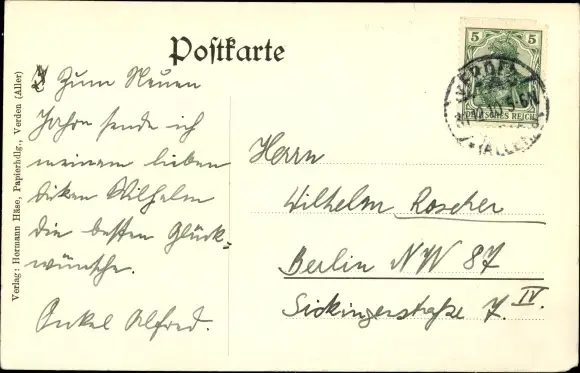 Postkarte
Zum Neuen
Jahre sende ich
meinem lieben
dicken Wilhelm
die besten Glück-
wünsche.
Onkel Alfred.
Herrn
Wilhelm Roscher
Berlin NW 87
Sickingerstraße 7. IV.
5 5
DEUTSCHES REICH
VERDEN
(ALLER)
Verlag: Hermann Häse, Papierhdlg., Verden (Aller)